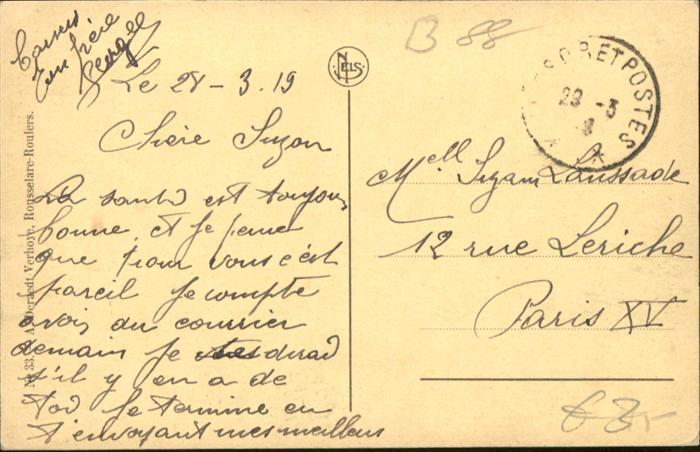 B 88
Ton frère
Georges
Le 28-3.19
NELS
TRESOR ET POSTES
Chère Suzon
La santé est toujours
bonne et je pense
que pour vous c'est
pareil je compte
avoir du courrier
demain je dirai
s'il y en a de
toi je termine en
t'envoyant mes meilleurs
Mell Suzane Laussade
12 rue Leriche
Paris XV
Nº 33. A. Deraedt-Verhoye, Rousselare-Roulers.